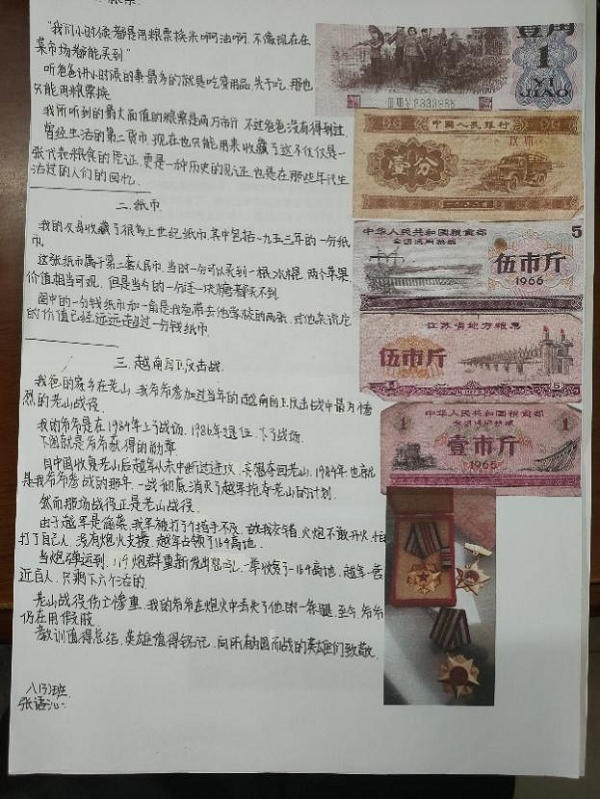 "我们小时候都是用粮票换米啊油啊.不像现在在
菜市场都能买到"
听爸爸讲小时候的事最多的就是吃、废用品、先于吃、那也
只能用粮票换.
我所听到的最大面值的粮票是两万市斤.不过爸爸没有得到过.
曾经生活的第二货币.现在也只能用来收藏了这不仅仅是一
张代表粮食的凭证.更是一种历史的见证.也是在那些年代生
活过的人们的回忆.
二.纸币
我的父母收藏了很多上世纪纸币.其中包括一九五三年的一份纸
币.
这张纸币属于第二套人民币.当时一分可以买到一根冰棍.两个苹果.
价值相当可观.但是当今的一份连一块糖都买不到.
图中的一分钱纸币和一角是我爸带去他学校的两张.对他来说它
的价值已经远远超过一分钱纸币.
三.越南自卫反击战
我爸的家乡在老山.我爷爷参加过当年的越南自卫反击战中最为惨
烈的老山战役.
我的爷爷是在1984年上了战场.1986年退伍.下了战场.
下图就是爷爷获得的勋章
自中国收复老山后越军从未中断过进攻.妄想夺回老山.1984年.也就
是我爷爷参战的那年.一战彻底消灭了越军抢夺老山的计划.
然而那场战役正是老山战役.
由于越军是偷袭.我军被打了个措手不及.敌我交错.火炮不敢开火.怕
打了自己人.没有炮火支援.越军占领了164高地.
当炮弹运到.119炮群重新发出怒吼.一举收复了164高地.越军一营
近百人.只剩下六个活的.
老山战役伤亡惨重.我的爷爷在炮火中丢失了他的一条腿.至今.爷爷
仍在用假肢.
教训值得总结.英雄值得铭记.向所有为国而战的英雄们致敬.
八(3)班
张语沁
壹角
1
YI
JIAO
中国人民银行
壹分
中华人民共和国粮食部
全国通用粮票
5
伍市斤
1966
江苏省地方粮票
伍市斤
中华人民共和国粮食部
全国通用粮票
1
壹市斤
1966